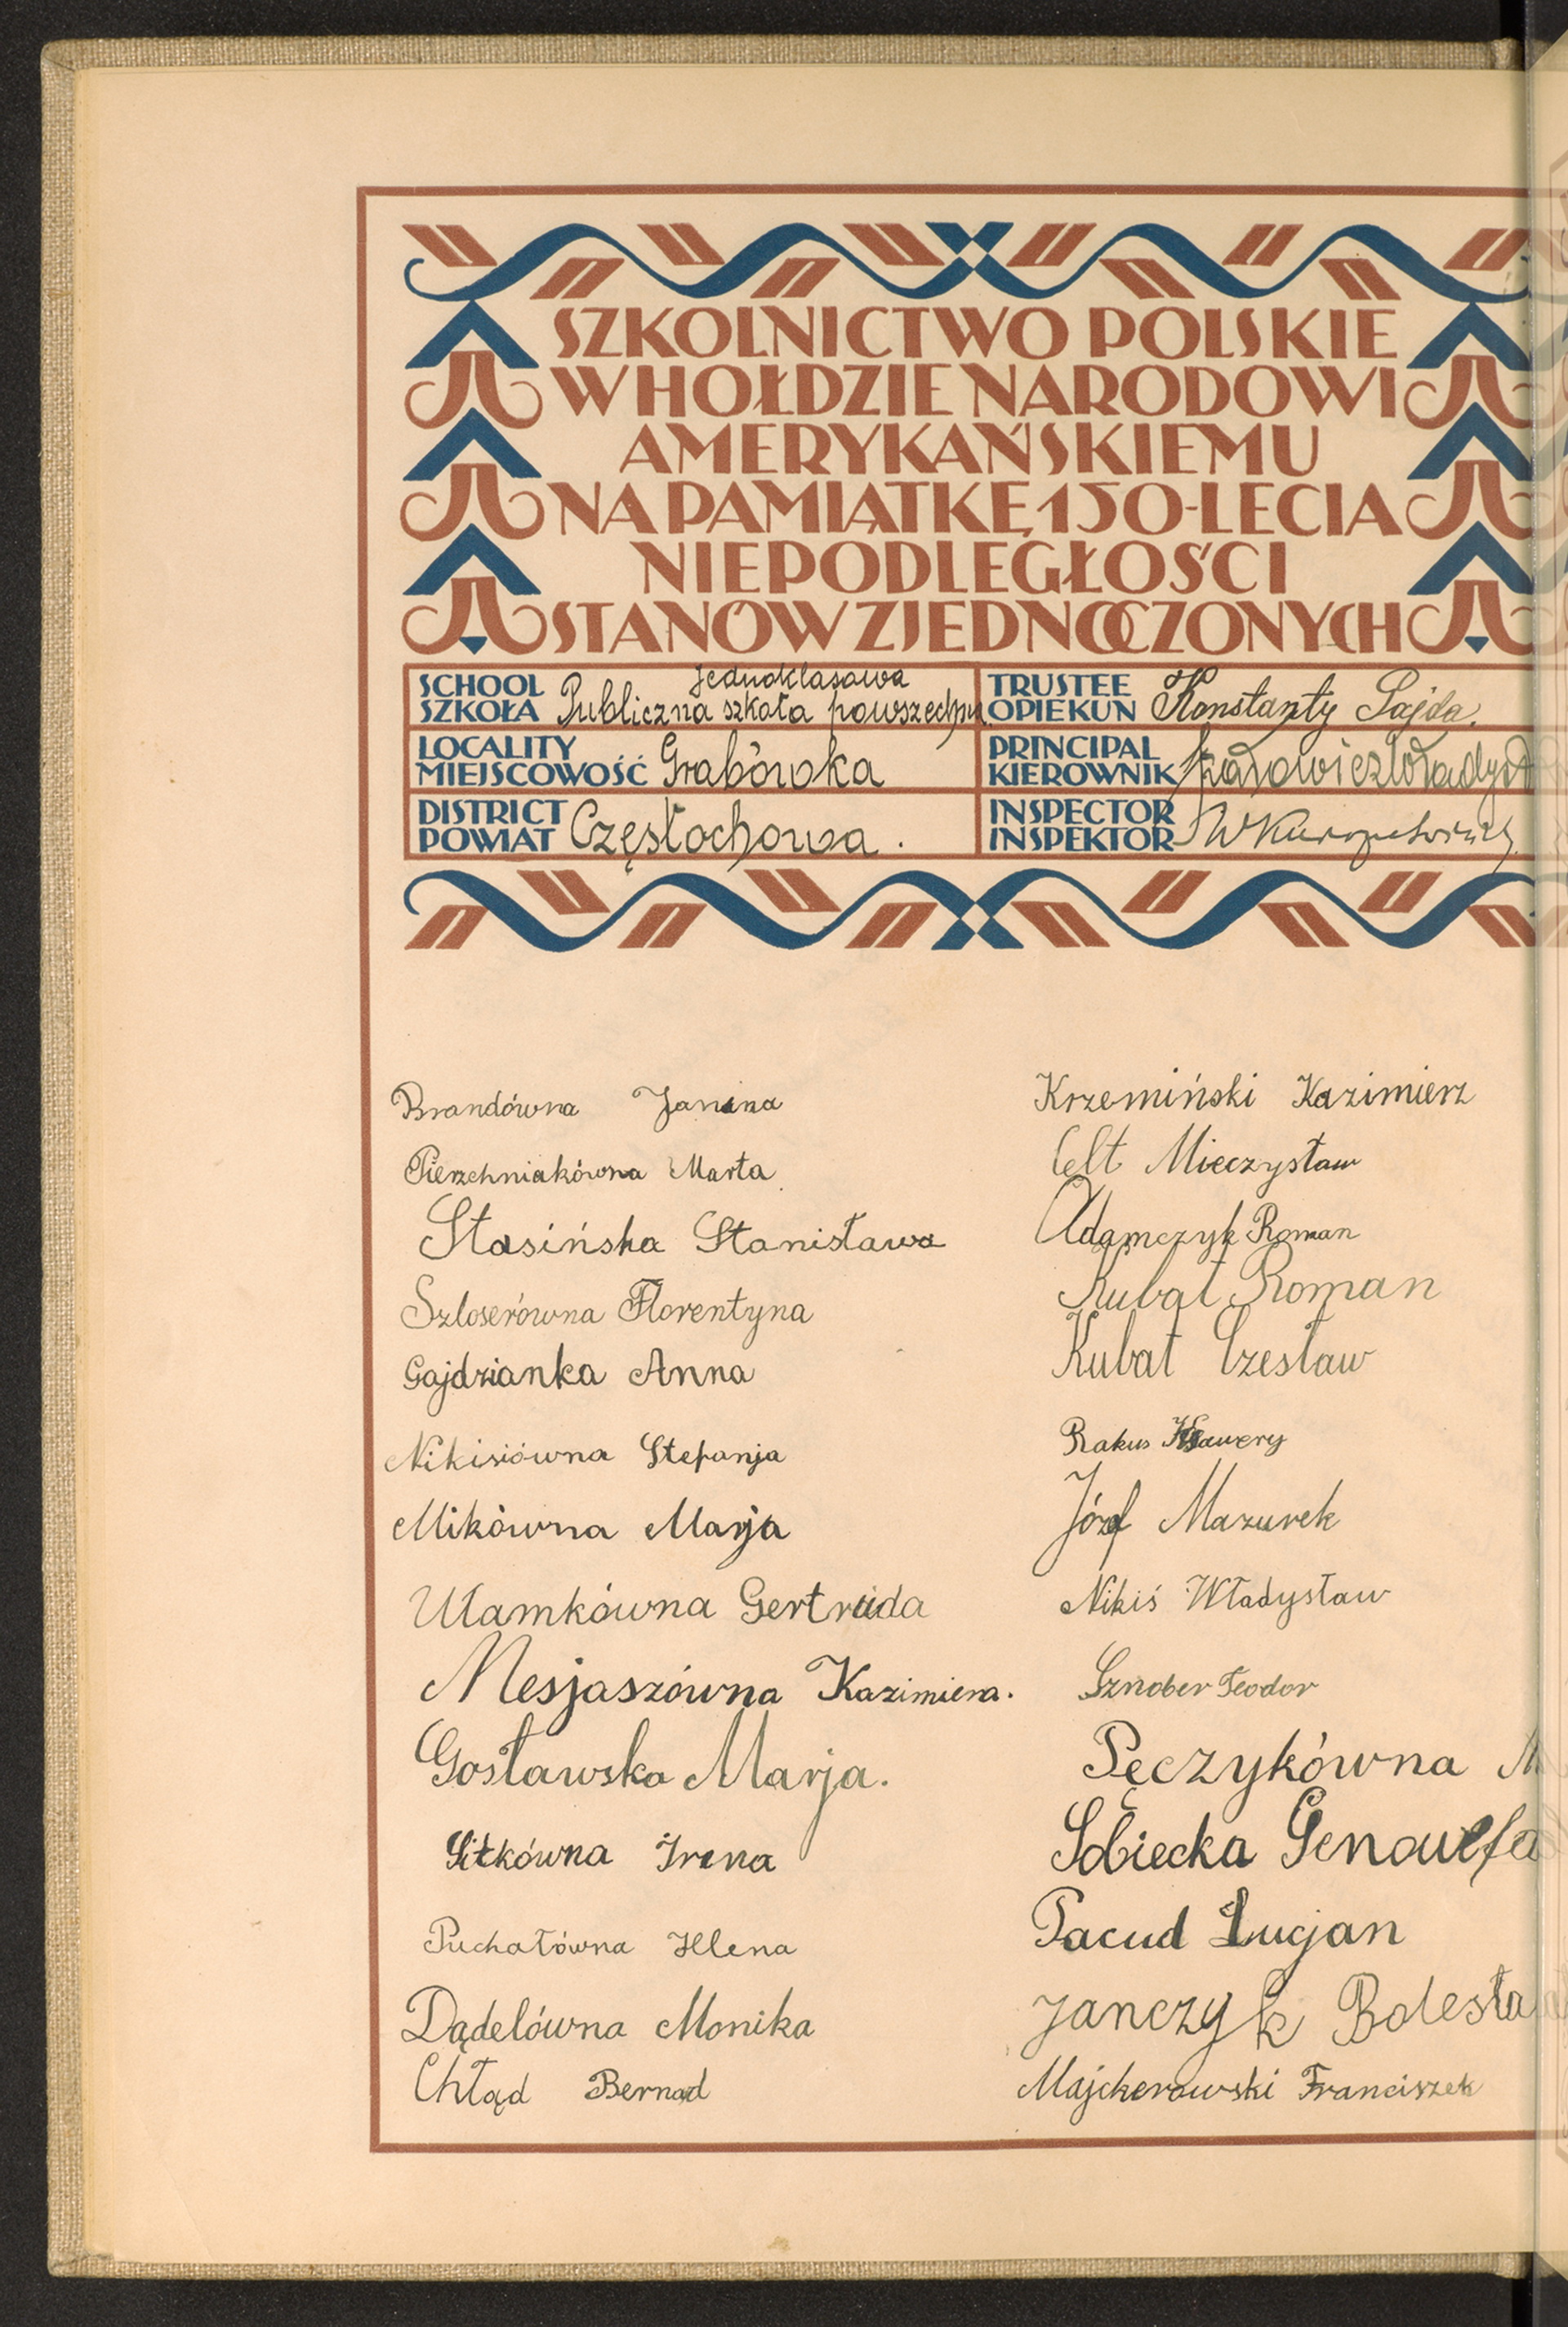 SZKOLNICTWO POLSKIE
W HOŁDZIE NARODOWI
AMERYKAŃSKIEMU
NA PAMIĄTKĘ 150-LECIA
NIEPODLEGŁOŚCI
STANÓW ZJEDNOCZONYCH
SCHOOL
SZKOŁA
Jednoklasowa
Publiczna szkoła powszechn.
TRUSTEE
OPIEKUN
Konstanty Pajda.
LOCALITY
MIEJSCOWOŚĆ
Grabówka
PRINCIPAL
KIEROWNIK
DISTRICT
POWIAT
Częstochowa.
INSPECTOR
INSPEKTOR
Brandówna Janina
Pierzchniakówna Marta
Stasińska Stanisława
Szloserówna Florentyna
Gajdzianka Anna
Nikisiówna Stefanja
Mikówna Marja
Ułamkówna Gertruda
Mesjaszówna Kazimiera.
Gosławska Marja.
Sitkówna Irena
Puchałówna Helena
Dądelówna Monika
Chłąd Bernad
Krzemiński Kazimierz
Celt Mieczysław
Adamczyk Roman
Kubat Roman
Kubat Czesław
Rakus Ksawery
Józef Mazurek
Nikiś Władysław
Sznober Teodor
Pęczykówna M
Sobiecka Genowefa
Pacud Lucjan
Janczyk Bolesła
Majcherowski Franciszek